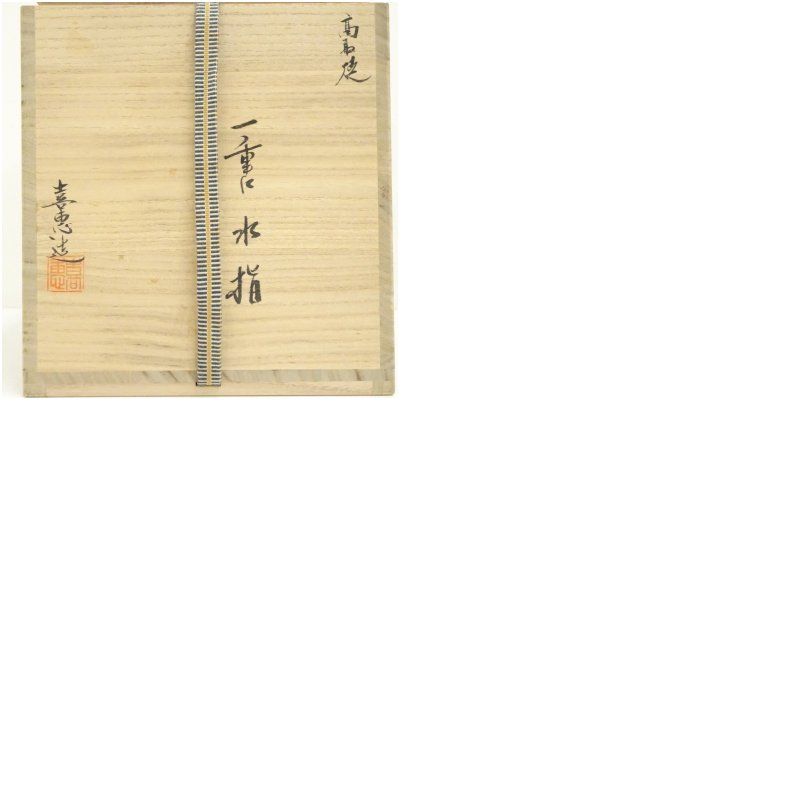 高取焼
一重口水指
喜恵造